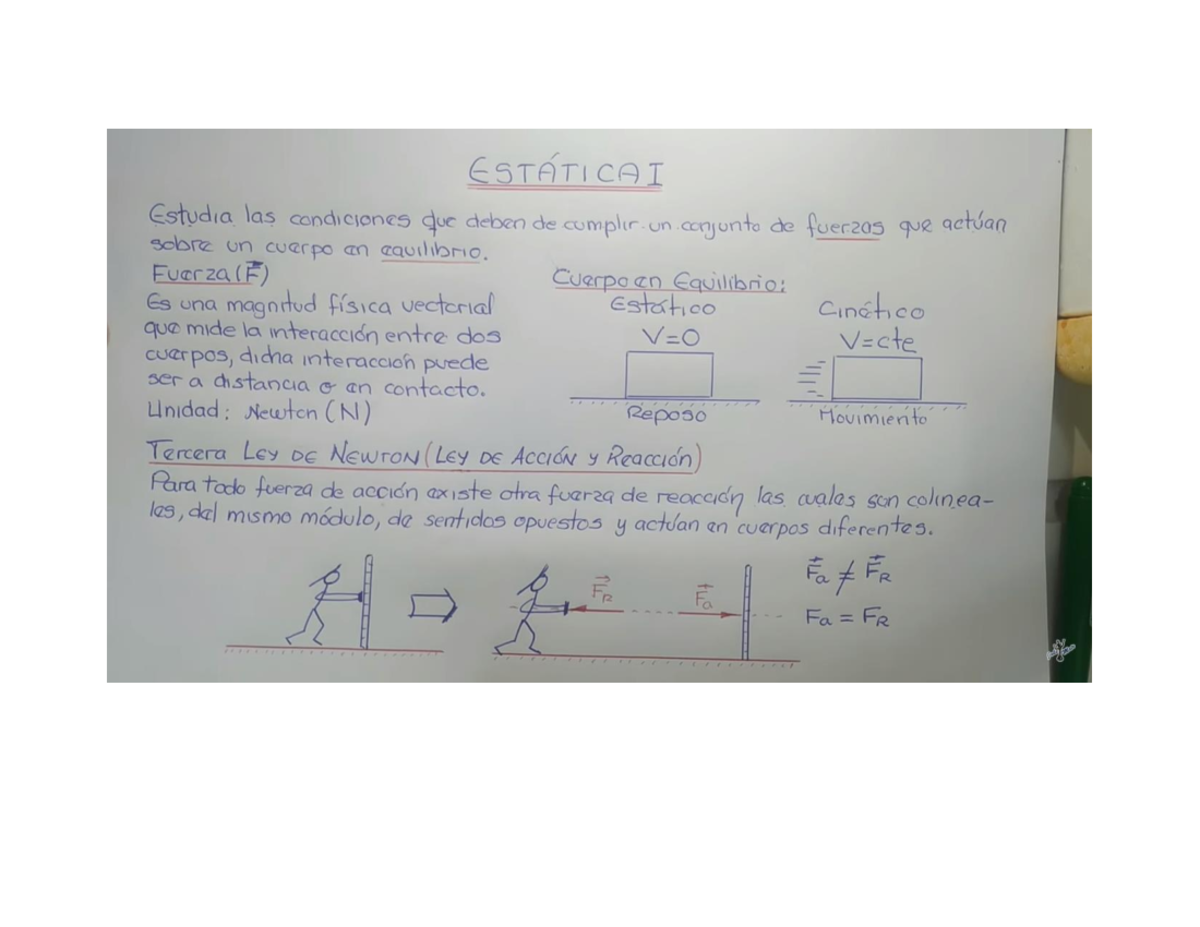 ESTÁTICA I
Estudia las condiciones que deben de cumplir un conjunto de fuerzas que actúan
sobre un cuerpo en equilibrio.
Fuerza (F⃗)
Es una magnitud física vectorial
que mide la interacción entre dos
cuerpos, dicha interacción puede
ser a distancia o en contacto.
Unidad: Newton (N)
Cuerpo en Equilibrio:
Estático
V=0
Reposo
Cinético
V=cte
Movimiento
Tercera LEY DE NEWTON (LEY DE ACCIÓN y Reacción)
Para todo fuerza de acción existe otra fuerza de reacción las cuales son colinea-
les, del mismo módulo, de sentidos opuestos y actúan en cuerpos diferentes.
F⃗R
F⃗a
F⃗a ≠ F⃗R
Fa = FR